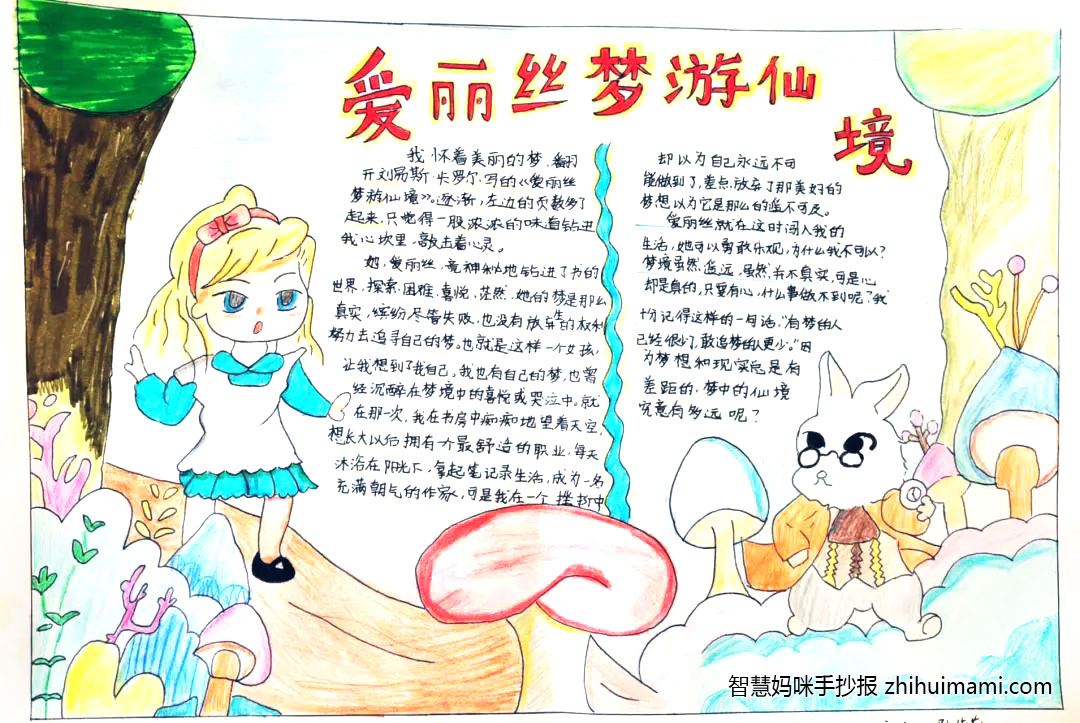 爱丽丝梦游仙
境
我怀着美丽的梦,翻
开刘易斯·卡罗尔写的《爱丽丝
梦游仙境》。逐渐,左边的页数多了
起来,只觉得一股浓浓的味道钻进
我心坎里,敲击着心灵。
她,爱丽丝,竟神秘地钻进了书的
世界,探索、困难、喜悦、茫然,她的梦是那么
真实,缤纷,尽管失败,也没有放弃的权利
努力去追寻自己的梦。也就是这样一个女孩,
让我想到了我自己。我也有自己的梦,也曾
经沉醉在梦境中的喜悦或哭泣中。就
在那一次,我在书房中痴痴地望着天空,
想长大以后拥有个最舒适的职业,每天
沐浴在阳光下,拿起笔记录生活,成为一名
充满朝气的作家,可是我在一个挫折中
却以为自己永远不可
能做到了,差点放弃了那美好的
梦想以为它是那么的遥不可及。
爱丽丝就在这时闯入我的
生活,她可以勇敢乐观,为什么我不可以?
梦境虽然遥远,虽然并不真实,可是心
却是真的,只要有心,什么事做不到呢?我
十分记得这样的一句话,"有梦的人
已经很少,敢追梦的人更少。"因
为梦想和现实总是有
差距的,梦中的仙境
究竟有多远呢?
智慧妈咪手抄报 zhihuimami.com